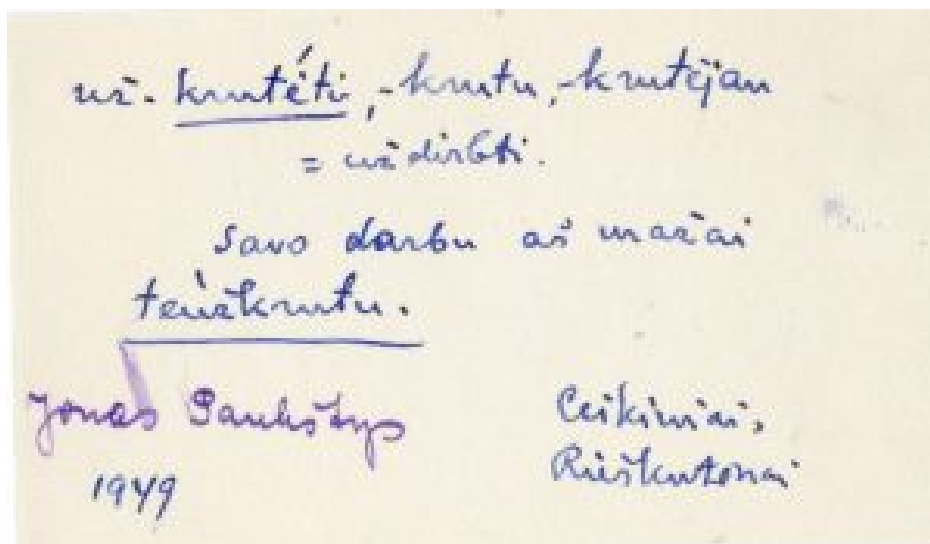 už-krutéti, -krutu, -krutėjau
= uždirbti.
Savo darbu aš mažai
teùžkrutu.
Jonas Paukštys
1949
Ceikiniai,